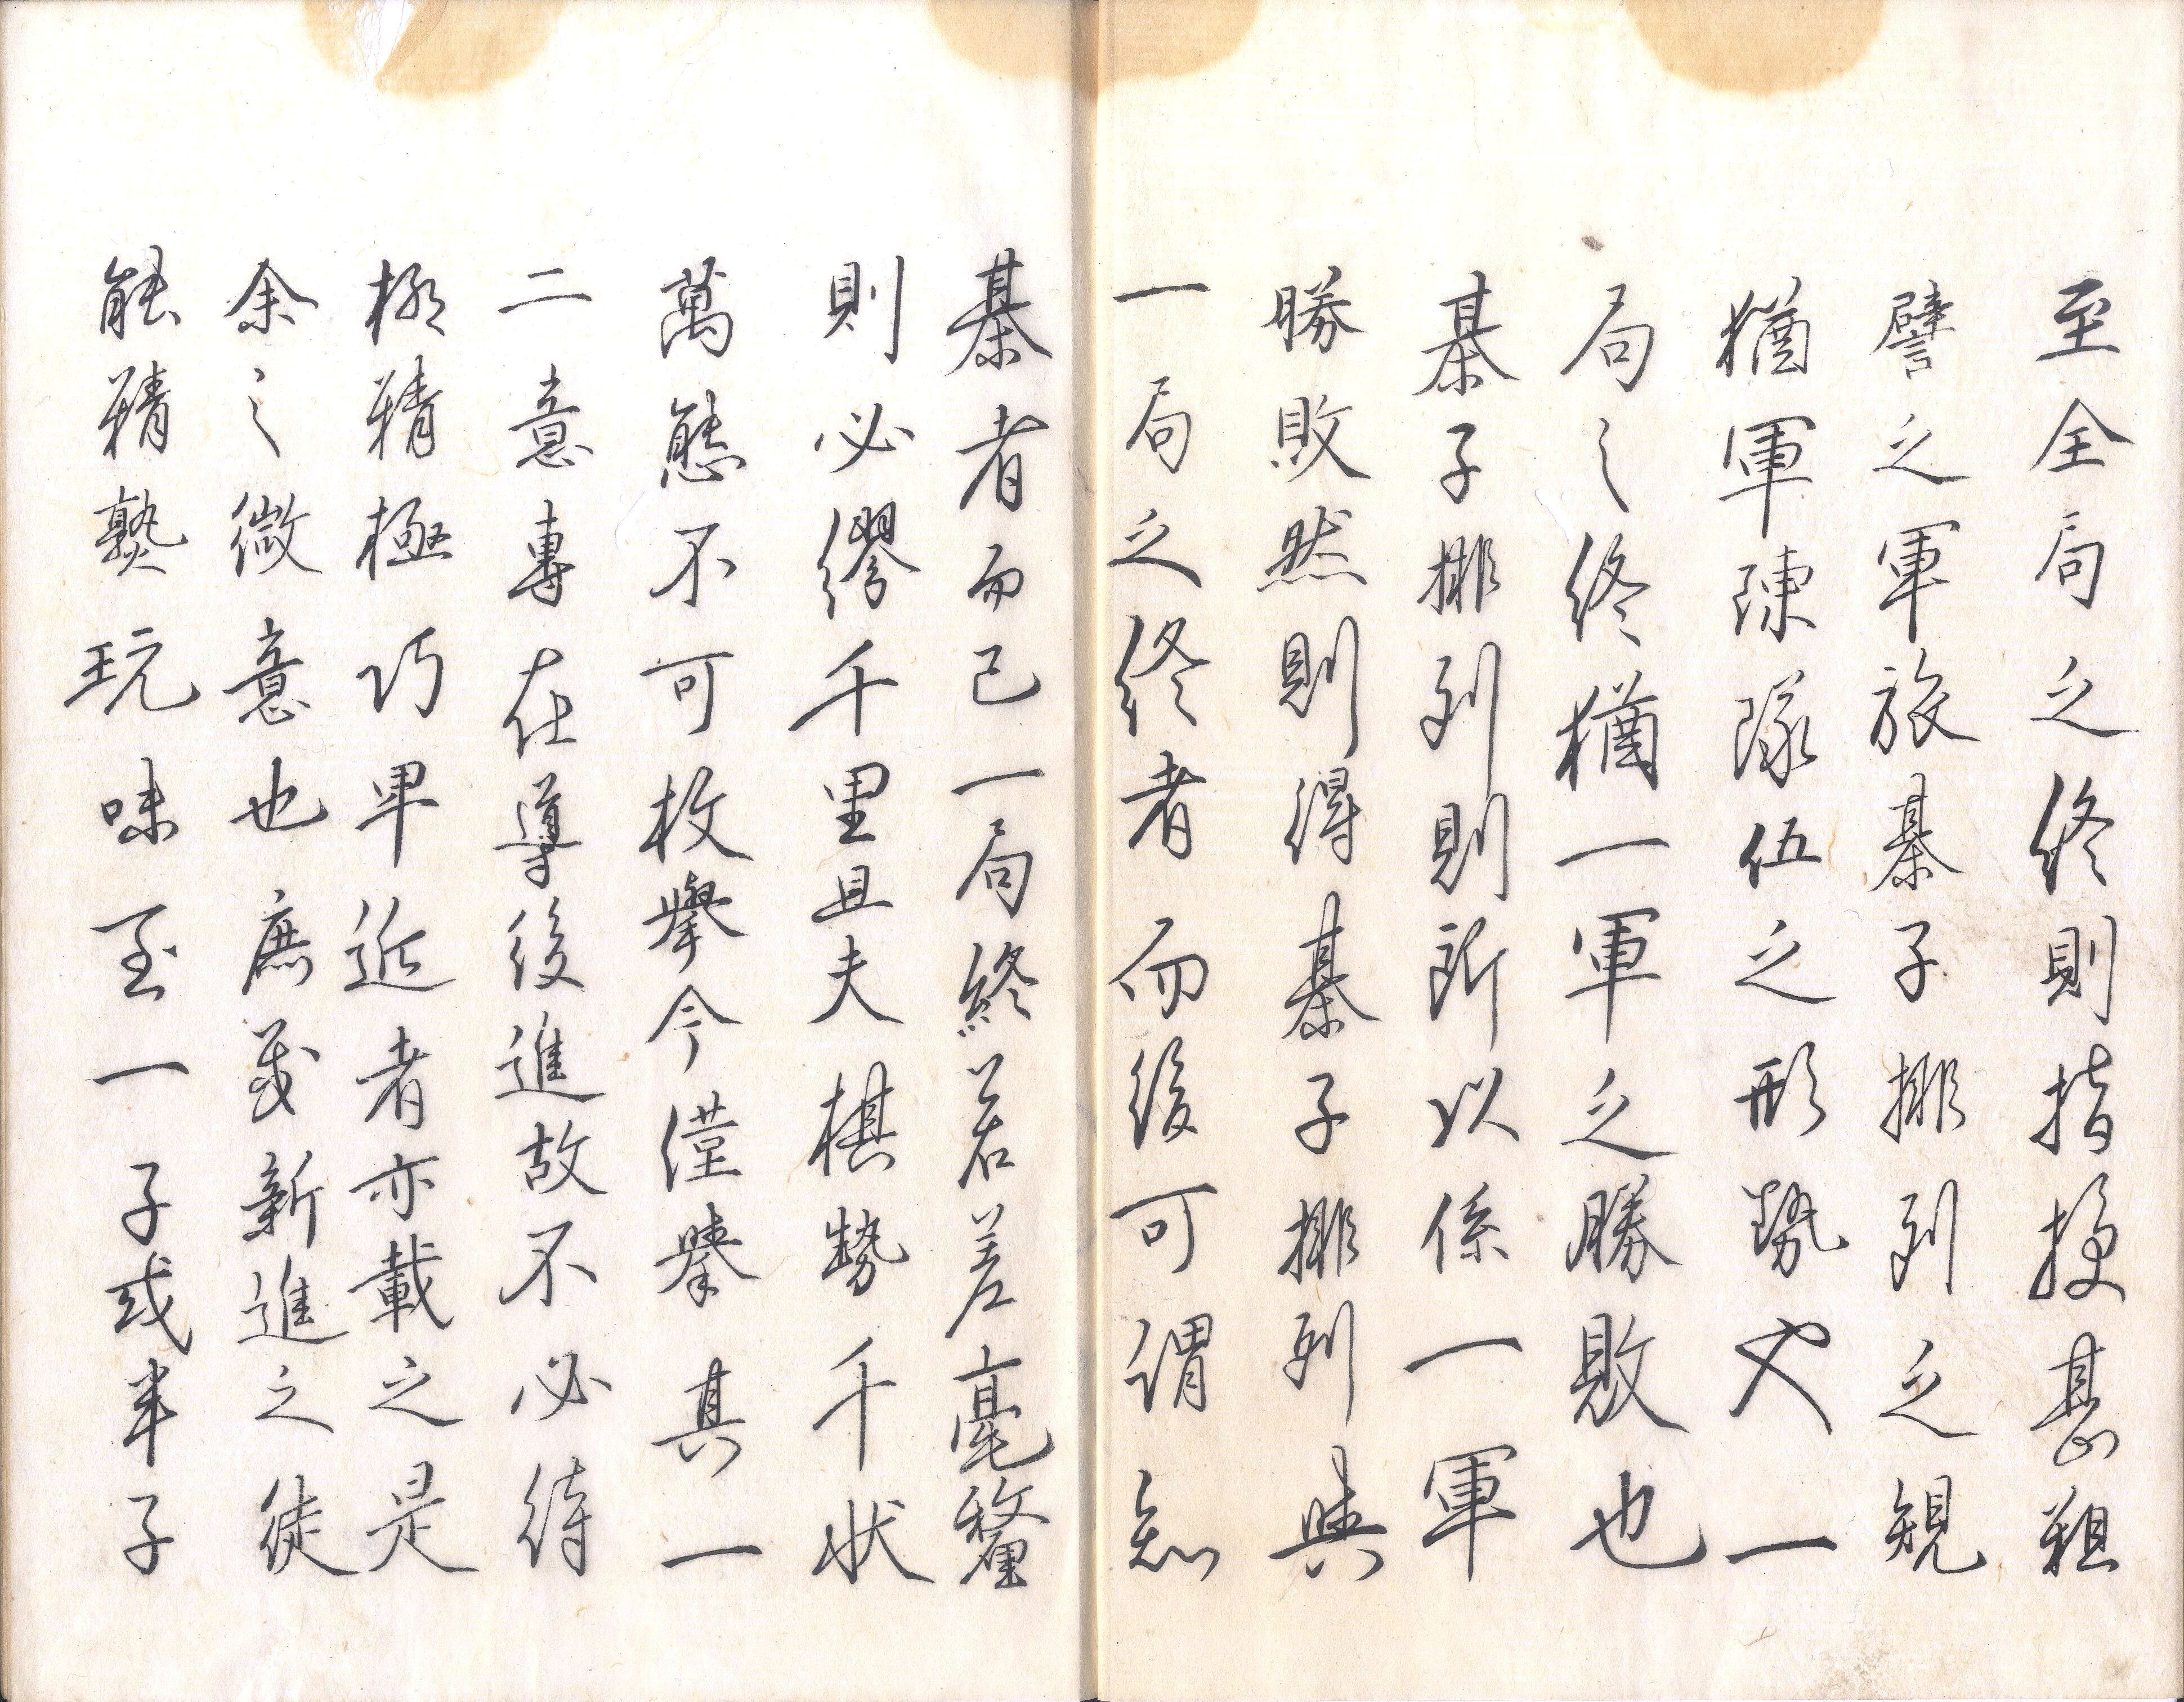 至全局之終則指授甚粗
譬之軍旅棊子排列之規
猶軍陳隊伍之形勢也一
局之終猶一軍之勝敗也
棊子排列則所以係一軍
勝敗然則得棊子排列與
一局之終者而後可謂知
棊者而已一局終若差毫釐
則必繆千里且夫棋勢千狀
萬態不可枚舉今僅擧其一
二意專在導後進故不必待
極精極巧卑近者亦載之是
余之微意也庶幾新進之徒
能精熟玩味至一子或半子